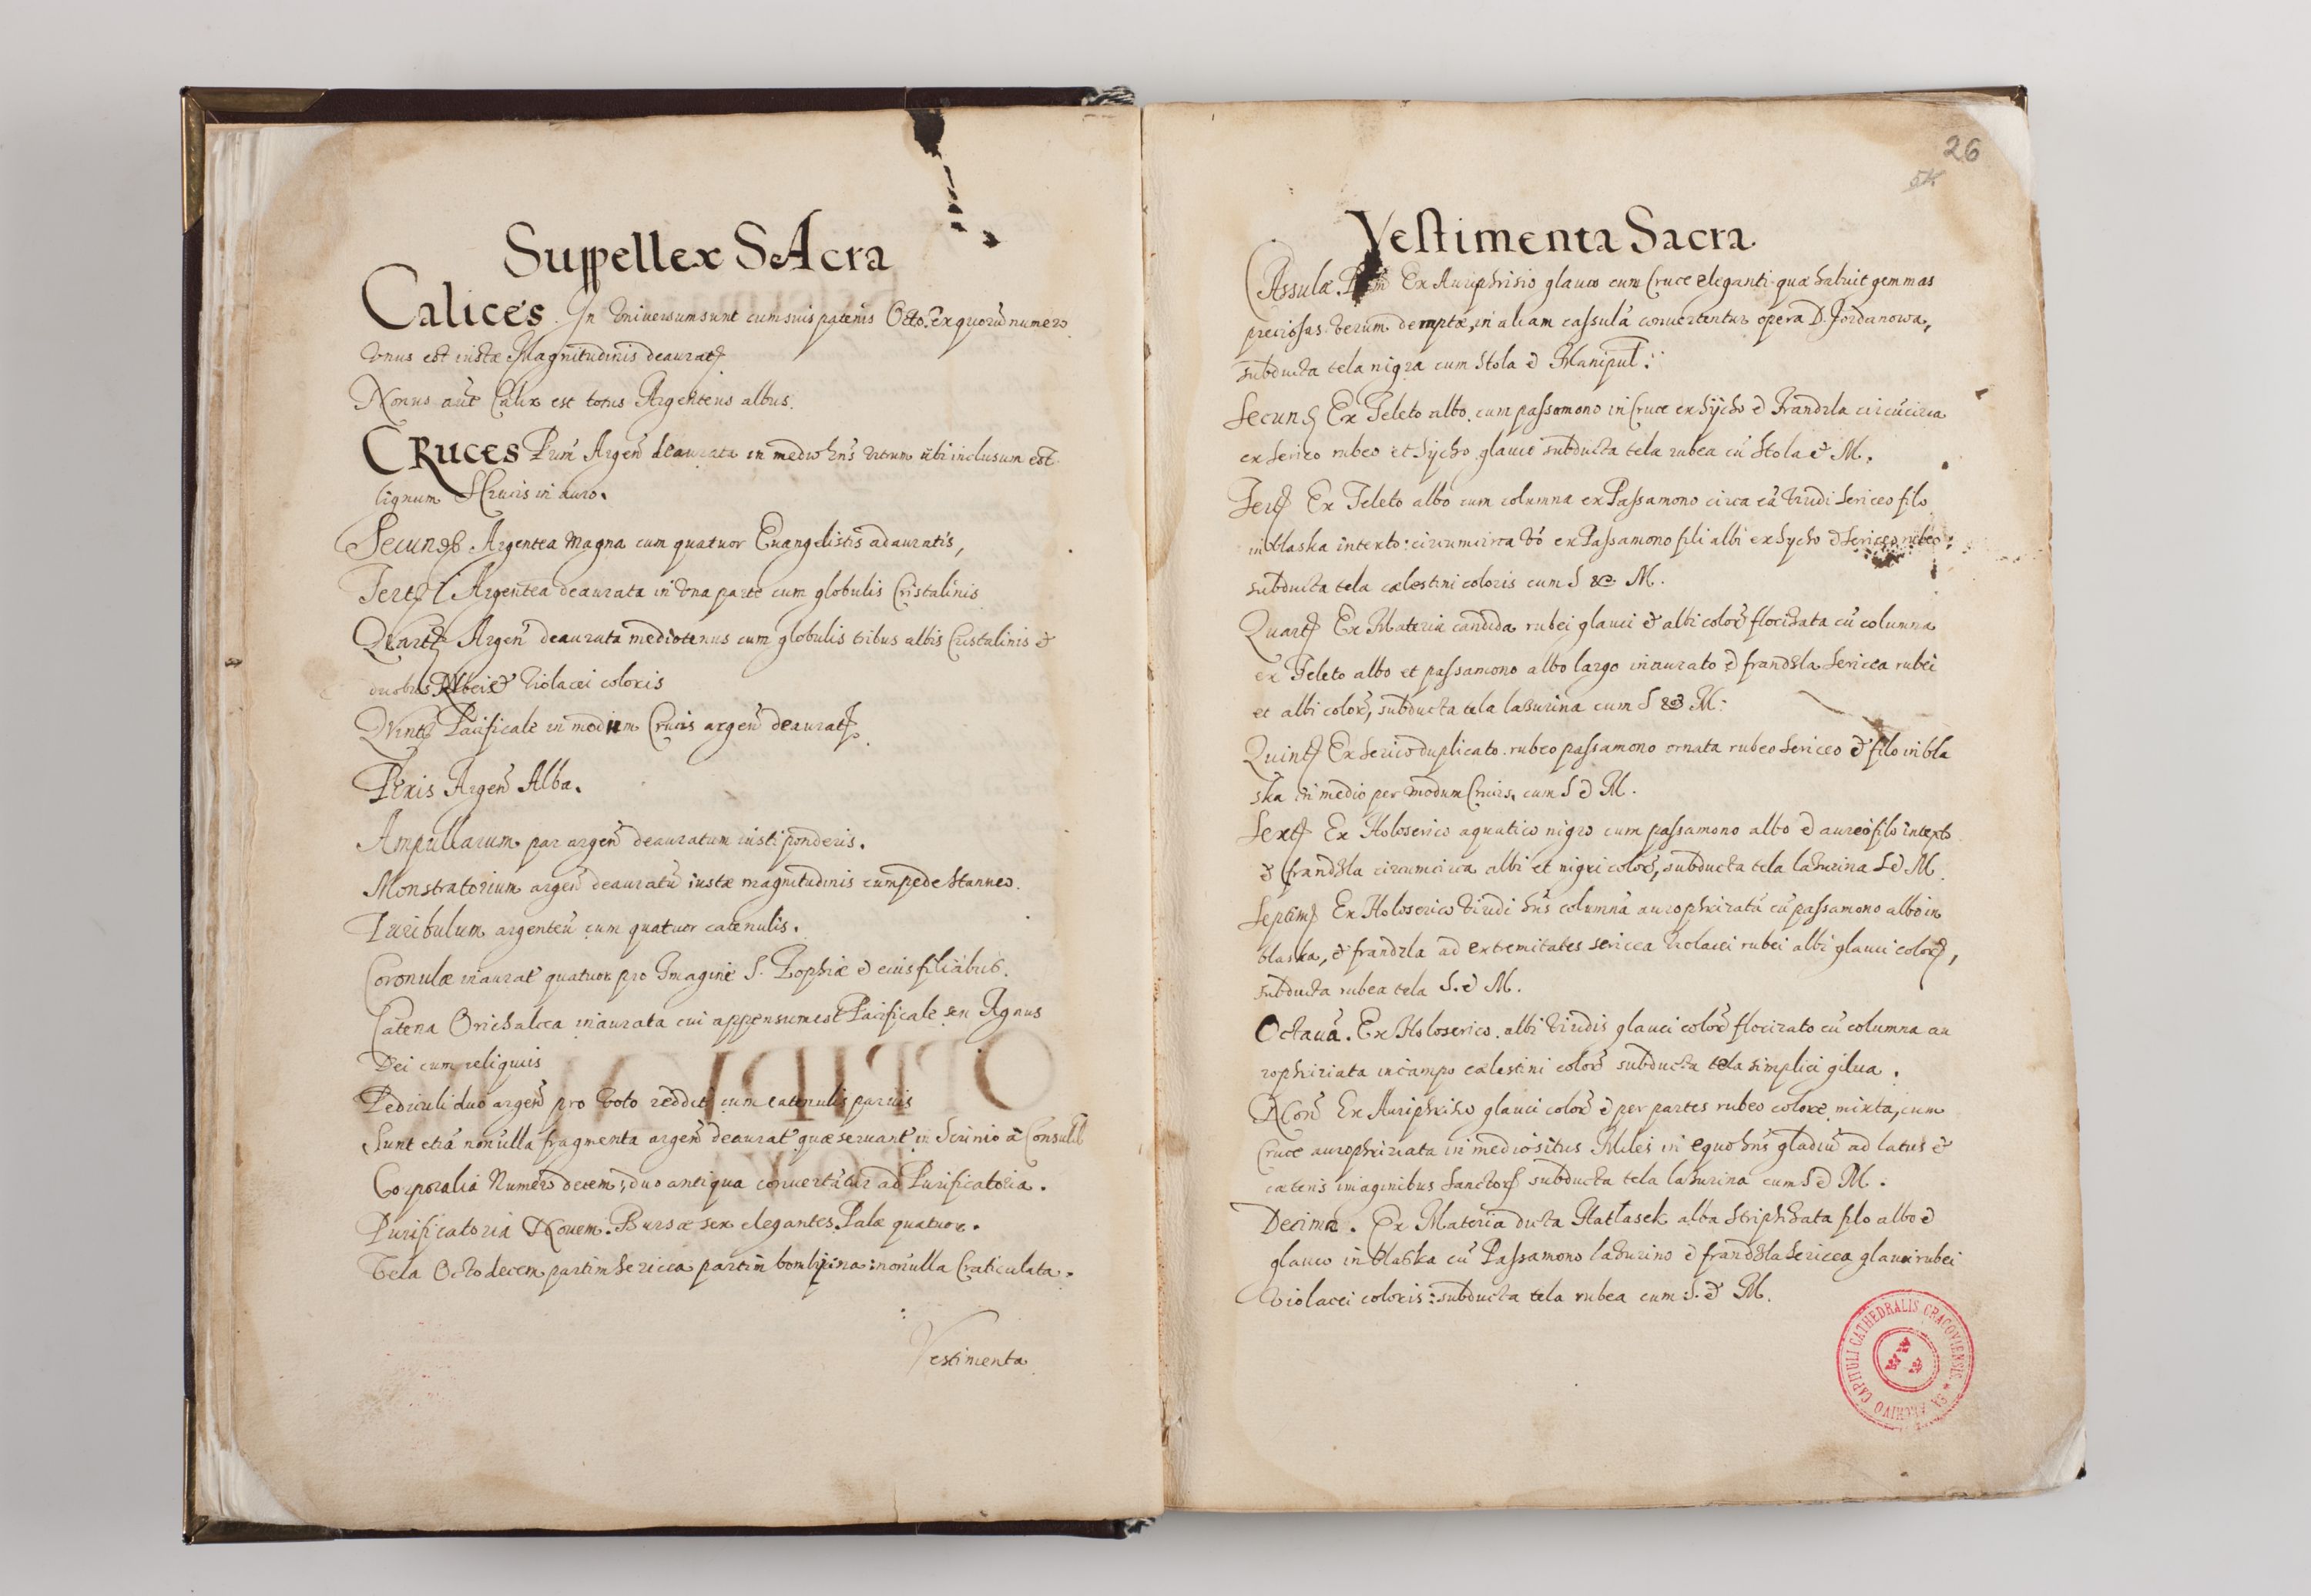 Suppellex SAcra
Calices. In Vniuersum sunt cum suis patenis Octo. Ex quorũ numero
vnus est iustæ Magnitudinis deaurat
Nonus aũt Calix est totus Argenteus albus.
CRUCES Prim Argeñ deaurata in medio hñs vitrum vbi inclusum est
lignum S Crucis in auro.
Secund Argentea Magna cum quatuor Euangelistis adauratis,
Tert Argentea deaurata in vna parte cum globulis Cristalinis
Quart Argeñ deaurata mediotenus cum globulis tribus albis Cristalinis &
duobus Rubei & violacei coloris
Quint Pacificale in modum Crucis argeñ deaurat.
Pixis Argeñ Alba.
Ampullarum par argeñ deauratum iusti ponderis.
Monstratorium argeñ deauratũ iustæ magnitudinis cum pede stanneo.
Turibulum argenteũ cum quatuor catenulis.
Coronulæ inaurat quatuor pro Imagine S. Sophiæ & eius filiabus.
Catena Orichalcea inaurata cui appensum est Pacificale seu Agnus
Dei cum reliquiis
Pediculi duo argeñ pro voto reddit cum catenulis paruis
Sunt etiã nonulla fragmenta argeñ deaurat quæ seruant in Scrinio â Consulib
Corporalia Numero decem; duo antiqua conuertãtur ad Purificatoria.
Purificatoria Nouem. Bursæ sex elegantes. Palæ quatuor.
Tela Octodecem partim sericea partim bombicina: nonulla Craticulata.
Vestimenta
26
54
Vestimenta Sacra
CAssulæ. Ex Auriphrisio glauco cum Cruce eleganti quæ habuit gemmas
preciosas verum demptæ, in aliam cassulã conuertentur opera D. Jordanowa,
subducta tela nigra cum Stola & Manipul:
Secund Ex Teleto albo cum passamono in Cruce ex Sycho & Frandzla circũcirca
ex Serico rubeo et Sycho glauco subducta tela rubea cũ Stola & M.
Tert Ex Teleto albo cum columna ex Passamono circa eã viridi Sericeo filo
in blaska intexto: circumcirca vò ex Passamono fili albi ex Sycho & Sericeo rubeo:
subducta tela cælestini coloris cum S & M.
Quart Ex Materia candida rubei glauci & albi color florisata cũ columna
ex Teleto albo et passamono albo largo inaurato & frandzla Sericea rubei
et albi color, subducta tela lasurina cum S & M:
Quint Ex Serico duplicato rubeo passamono ornata rubeo Sericeo & filo in bla
ska in medio per modum Crucis, cum S & M.
Sext Ex Holoserico aquatico nigro cum passamono albo & aureo filo intexto
& frandzla circumcirca albi et nigri color, subducta tela lasurina S & M.
Septim Ex Holoserico viridi hñs columnã aurophriratã cũ passamono albo in
blaska, & frandzla ad extremitates sericea violacei rubei albi glauci color,
subducta rubea tela S. & M.
Octaua. Ex Holoserico albi viridis glauci color florizato cũ columna au
rophiriata in campo cælestini color subducta tela simplici gilua.
Non Ex Auriphriso glauci color & per partes rubeo colore mixta, cum
Cruce aurophiriata in medio situs Miles in equo hñs gladiũ ad latus &
cæteris imaginibus Sanctor subducta tela lasurina cum S & M.
Decima. Ex Materia dicta Hatlasek alba striphzata filo albo &
glauco in blaska cũ Passamono lasurino & frandzla Sericea glauci rubei
violacei coloris: subducta tela rubea cum S. & M.
EX ARCHIVO CAPITULI CATHEDRALIS CRACOVIENSIS